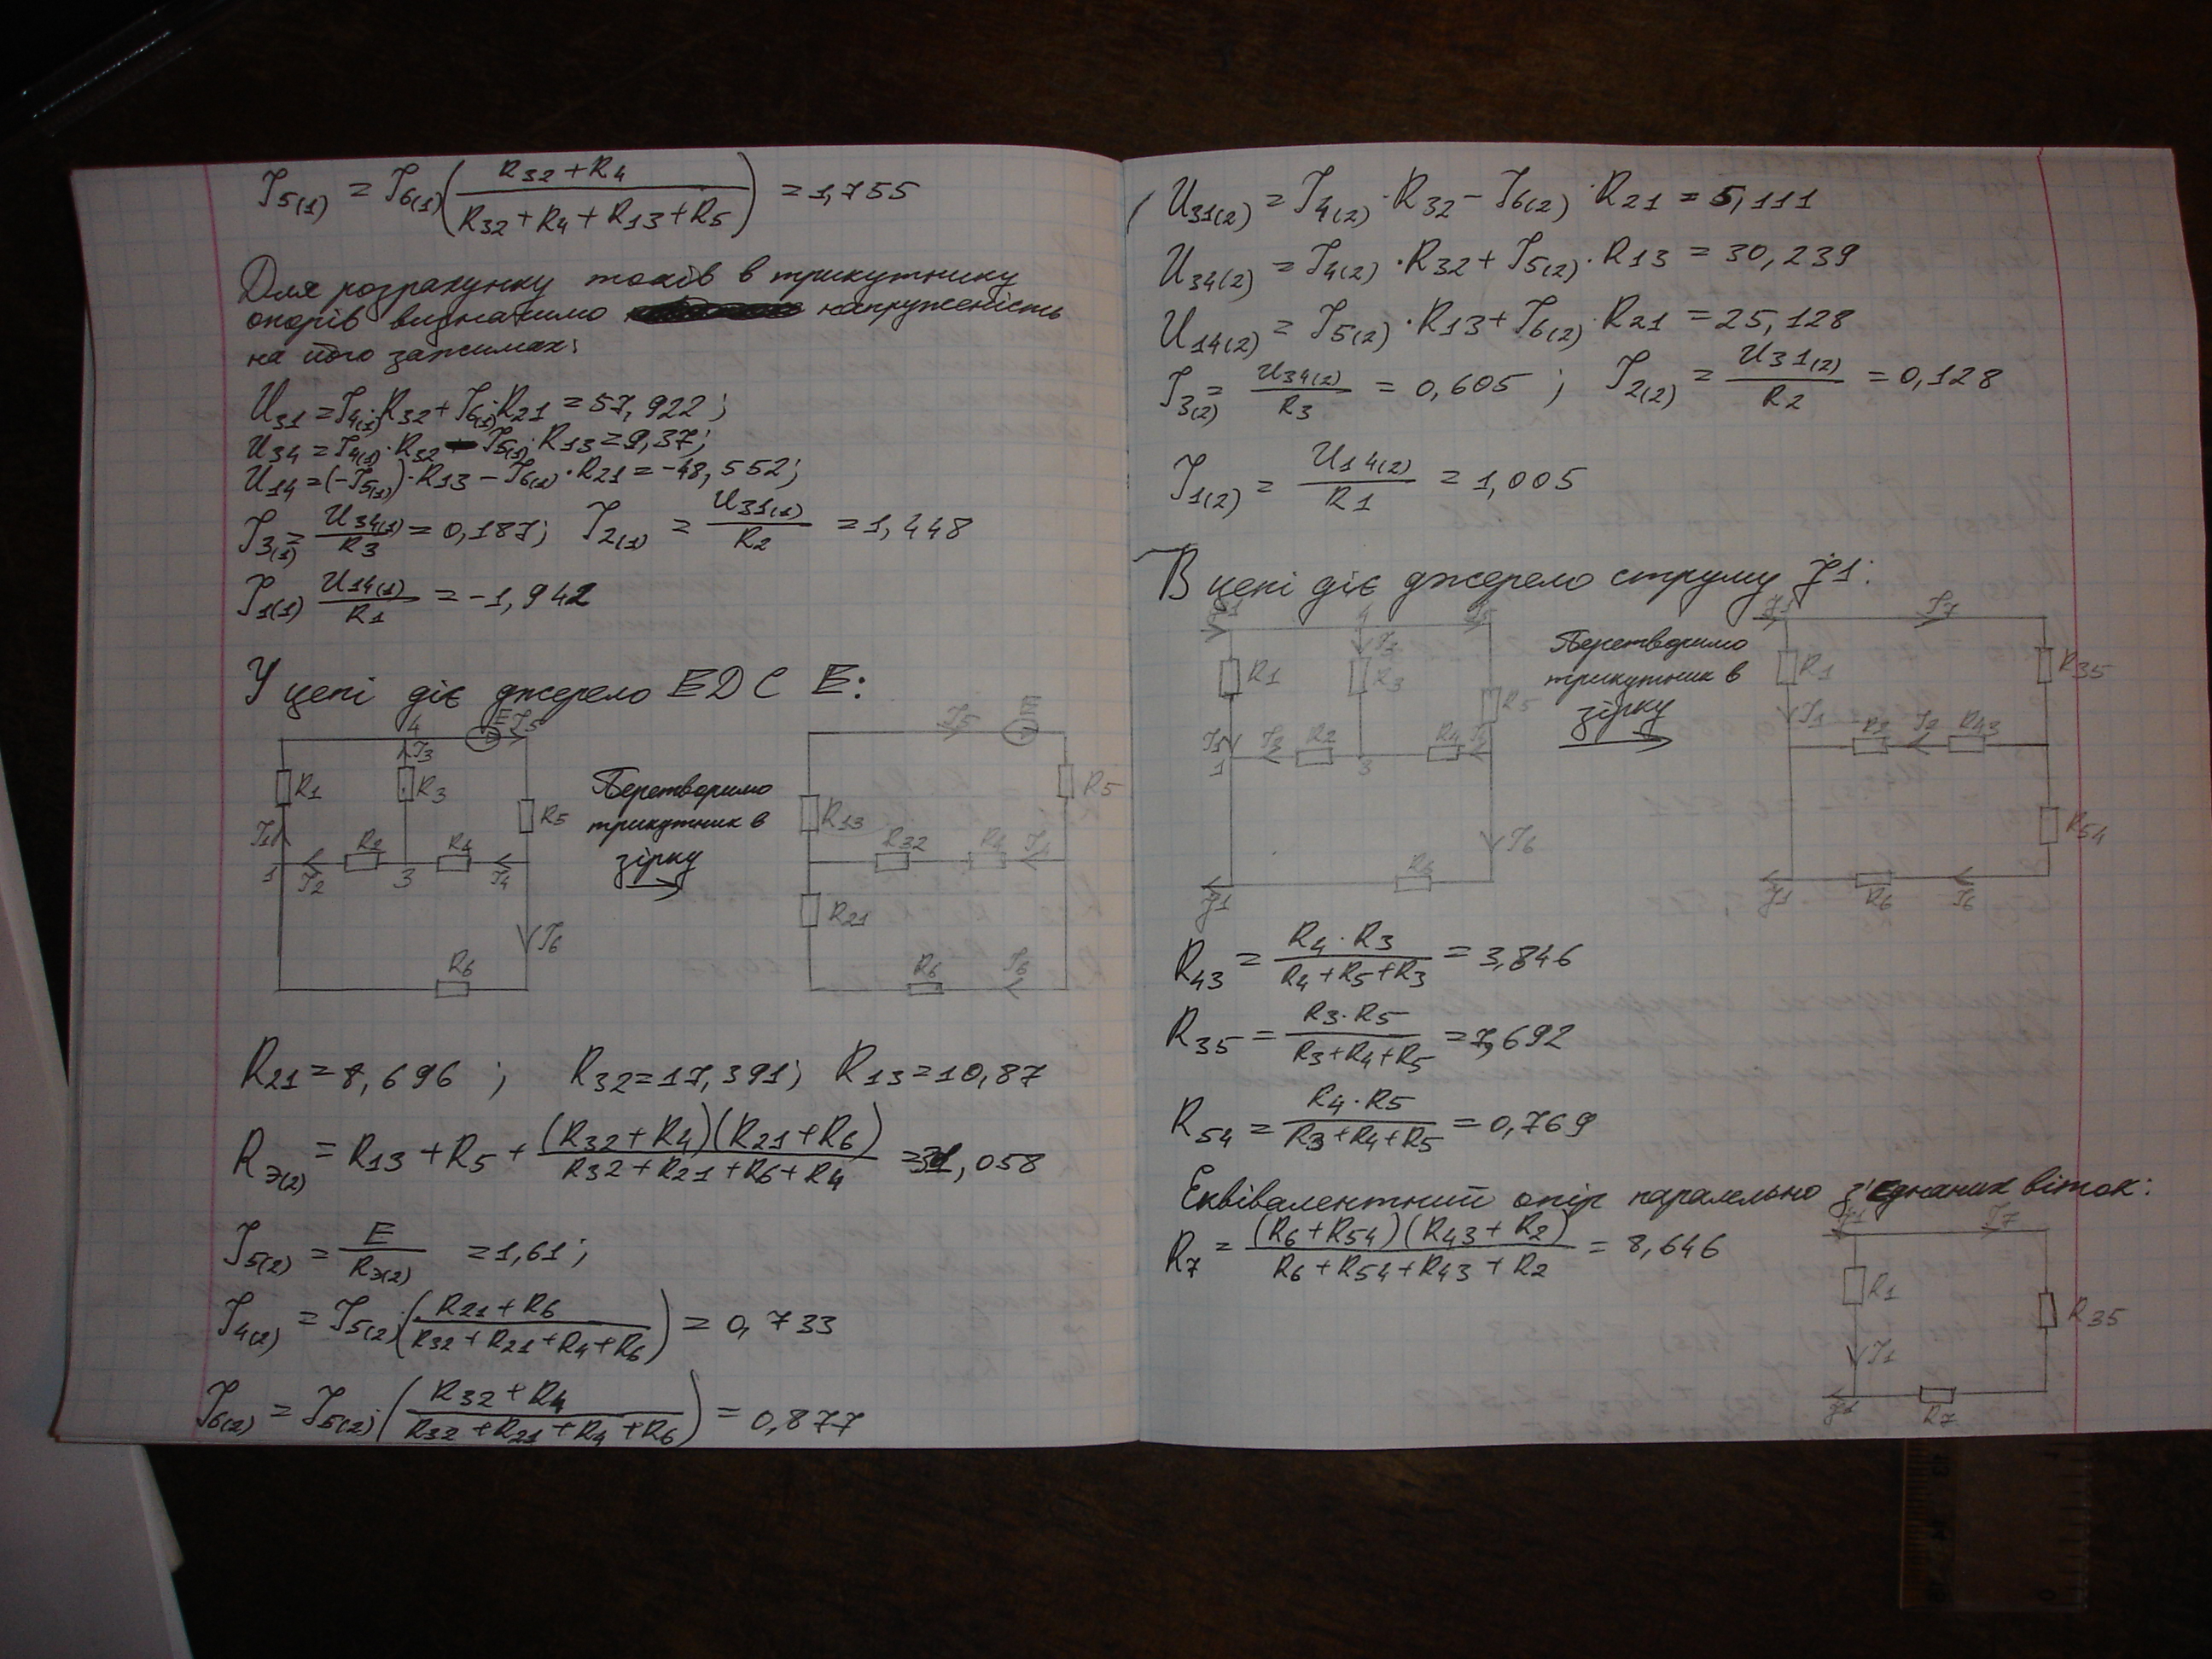 I5(1) = I6(1) (R32+R4 / R32+R4+R13+R5) = 1,755
Для розрахунку токів в трикутнику
опорів визначимо напруженість
на його зажимах:
U31 = I4(1)·R32 + I6(1)·R21 = 57,922;
U34 = I4(1)·R32 - I5(1)·R13 = 9,37;
U14 = (-I5(1))·R13 - I6(1)·R21 = -48,552;
I3(1) = U34(1) / R3 = 0,187; I2(1) = U31(1) / R2 = 1,448
I1(1) U14(1) / R1 = -1,942
У цепі діє джерело ЕДС Е:
4 E I5
I3
R1 R3 R5
I1
R2 R4
1 I2 3 I4
I6
R6
Перетворимо
трикутник в
зірку
I5 E
R5
R13
R32 R4 I4
R21
R6 I6
R21 = 8,696 ; R32 = 17,391; R13 = 10,87
RЭ(2) = R13 + R5 + (R32+R4)(R21+R6) / R32+R21+R6+R4 = 31,058
I5(2) = E / RЭ(2) = 1,61;
I4(2) = I5(2)·(R21+R6 / R32+R21+R4+R6) = 0,733
I6(2) = I5(2)·(R32+R4 / R32+R21+R4+R6) = 0,877
U31(2) = I4(2)·R32 - I6(2)·R21 = 5,111
U34(2) = I4(2)·R32 + I5(2)·R13 = 30,239
U14(2) = I5(2)·R13 + I6(2)·R21 = 25,128
I3(2) = U34(2) / R3 = 0,605 ; I2(2) = U31(2) / R2 = 0,128
I1(2) = U14(2) / R1 = 1,005
В цепі діє джерело струму J1:
J1 4 I5
I3
R1 R3 R5
I1 I2 R2 R4 I4
1 3
I6
R6
J1
Перетворимо
трикутник в
зірку
J1 I7
R1 R35
I1 R2 I2 R43
R54
J1 R6 I6
R43 = R4·R3 / R4+R5+R3 = 3,846
R35 = R3·R5 / R3+R4+R5 = 7,692
R54 = R4·R5 / R3+R4+R5 = 0,769
Еквівалентний опір паралельно з'єднаних віток:
R7 = (R6+R54)(R43+R2) / R6+R54+R43+R2 = 8,646
J1 I7
R1
R35
I1
J1 R7